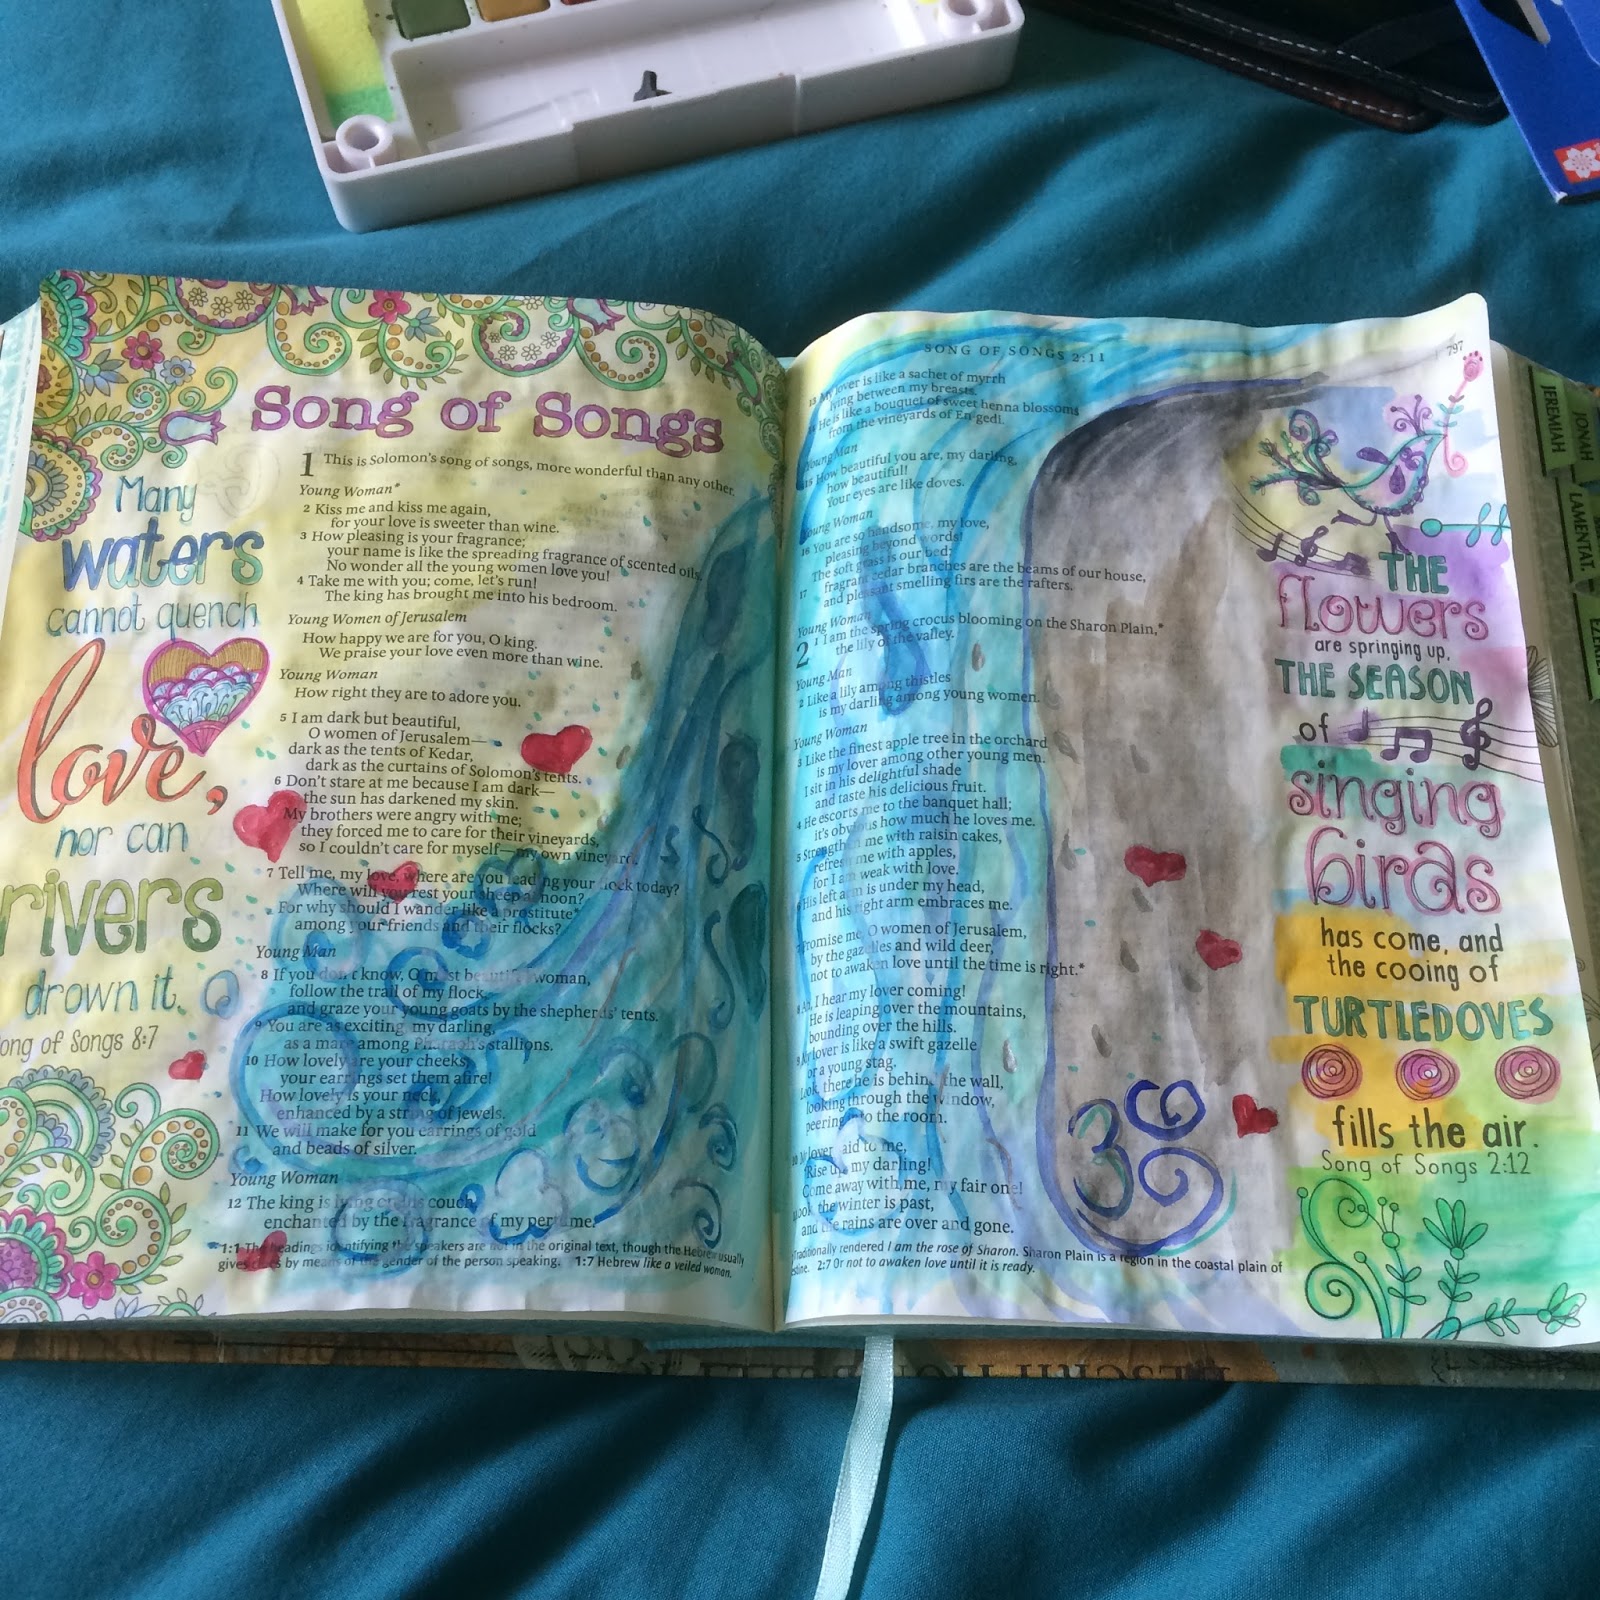 Song of Songs
Many
waters
cannot quench
love,
nor can
rivers
drown it.
ong of Songs 8:7
1 This is Solomon's song of songs, more wonderful than any other.
Young Woman*
2 Kiss me and kiss me again,
for your love is sweeter than wine.
3 How pleasing is your fragrance;
your name is like the spreading fragrance of scented oils.
No wonder all the young women love you!
4 Take me with you; come, let's run!
The king has brought me into his bedroom.
Young Women of Jerusalem
How happy we are for you, O king.
We praise your love even more than wine.
Young Woman
How right they are to adore you.
5 I am dark but beautiful,
O women of Jerusalem—
dark as the tents of Kedar,
dark as the curtains of Solomon's tents.
6 Don't stare at me because I am dark—
the sun has darkened my skin.
My brothers were angry with me;
they forced me to care for their vineyards,
so I couldn't care for myself—my own vineyard.
7 Tell me, my love, where are you leading your flock today?
Where will you rest your sheep at noon?
For why should I wander like a prostitute*
among your friends and their flocks?
Young Man
8 If you don't know, O most beautiful woman,
follow the trail of my flock,
and graze your young goats by the shepherds' tents.
9 You are as exciting, my darling,
as a mare among Pharaoh's stallions.
10 How lovely are your cheeks;
your earrings set them afire!
How lovely is your neck,
enhanced by a string of jewels.
11 We will make for you earrings of gold
and beads of silver.
Young Woman
12 The king is lying on his couch,
enchanted by the fragrance of my perfume.
1:1 The headings identifying the speakers are not in the original text, though the Hebrew usually
gives clues by means of the gender of the person speaking. 1:7 Hebrew like a veiled woman.
SONG OF SONGS 2:11
797
13 My lover is like a sachet of myrrh
lying between my breasts.
14 He is like a bouquet of sweet henna blossoms
from the vineyards of En-gedi.
Young Man
15 How beautiful you are, my darling,
how beautiful!
Your eyes are like doves.
Young Woman
16 You are so handsome, my love,
pleasing beyond words!
The soft grass is our bed;
17 fragrant cedar branches are the beams of our house,
and pleasant smelling firs are the rafters.
Young Woman
2 1 I am the spring crocus blooming on the Sharon Plain,*
the lily of the valley.
Young Man
2 Like a lily among thistles
is my darling among young women.
Young Woman
3 Like the finest apple tree in the orchard
is my lover among other young men.
I sit in his delightful shade
and taste his delicious fruit.
4 He escorts me to the banquet hall;
it's obvious how much he loves me.
5 Strengthen me with raisin cakes,
refresh me with apples,
for I am weak with love.
6 His left arm is under my head,
and his right arm embraces me.
7 Promise me, O women of Jerusalem,
by the gazelles and wild deer,
not to awaken love until the time is right.*
8 Ah, I hear my lover coming!
He is leaping over the mountains,
bounding over the hills.
9 My lover is like a swift gazelle
or a young stag.
Look, there he is behind the wall,
looking through the window,
peering into the room.
10 My lover said to me,
"Rise up, my darling!
Come away with me, my fair one!
11 Look, the winter is past,
and the rains are over and gone.
Traditionally rendered I am the rose of Sharon. Sharon Plain is a region in the coastal plain of
2:7 Or not to awaken love until it is ready.
THE
flowers
are springing up,
THE SEASON
of
singing
birds
has come, and
the cooing of
TURTLEDOVES
fills the air.
Song of Songs 2:12
JEREMIAH
JONAH
LAMENTAT.